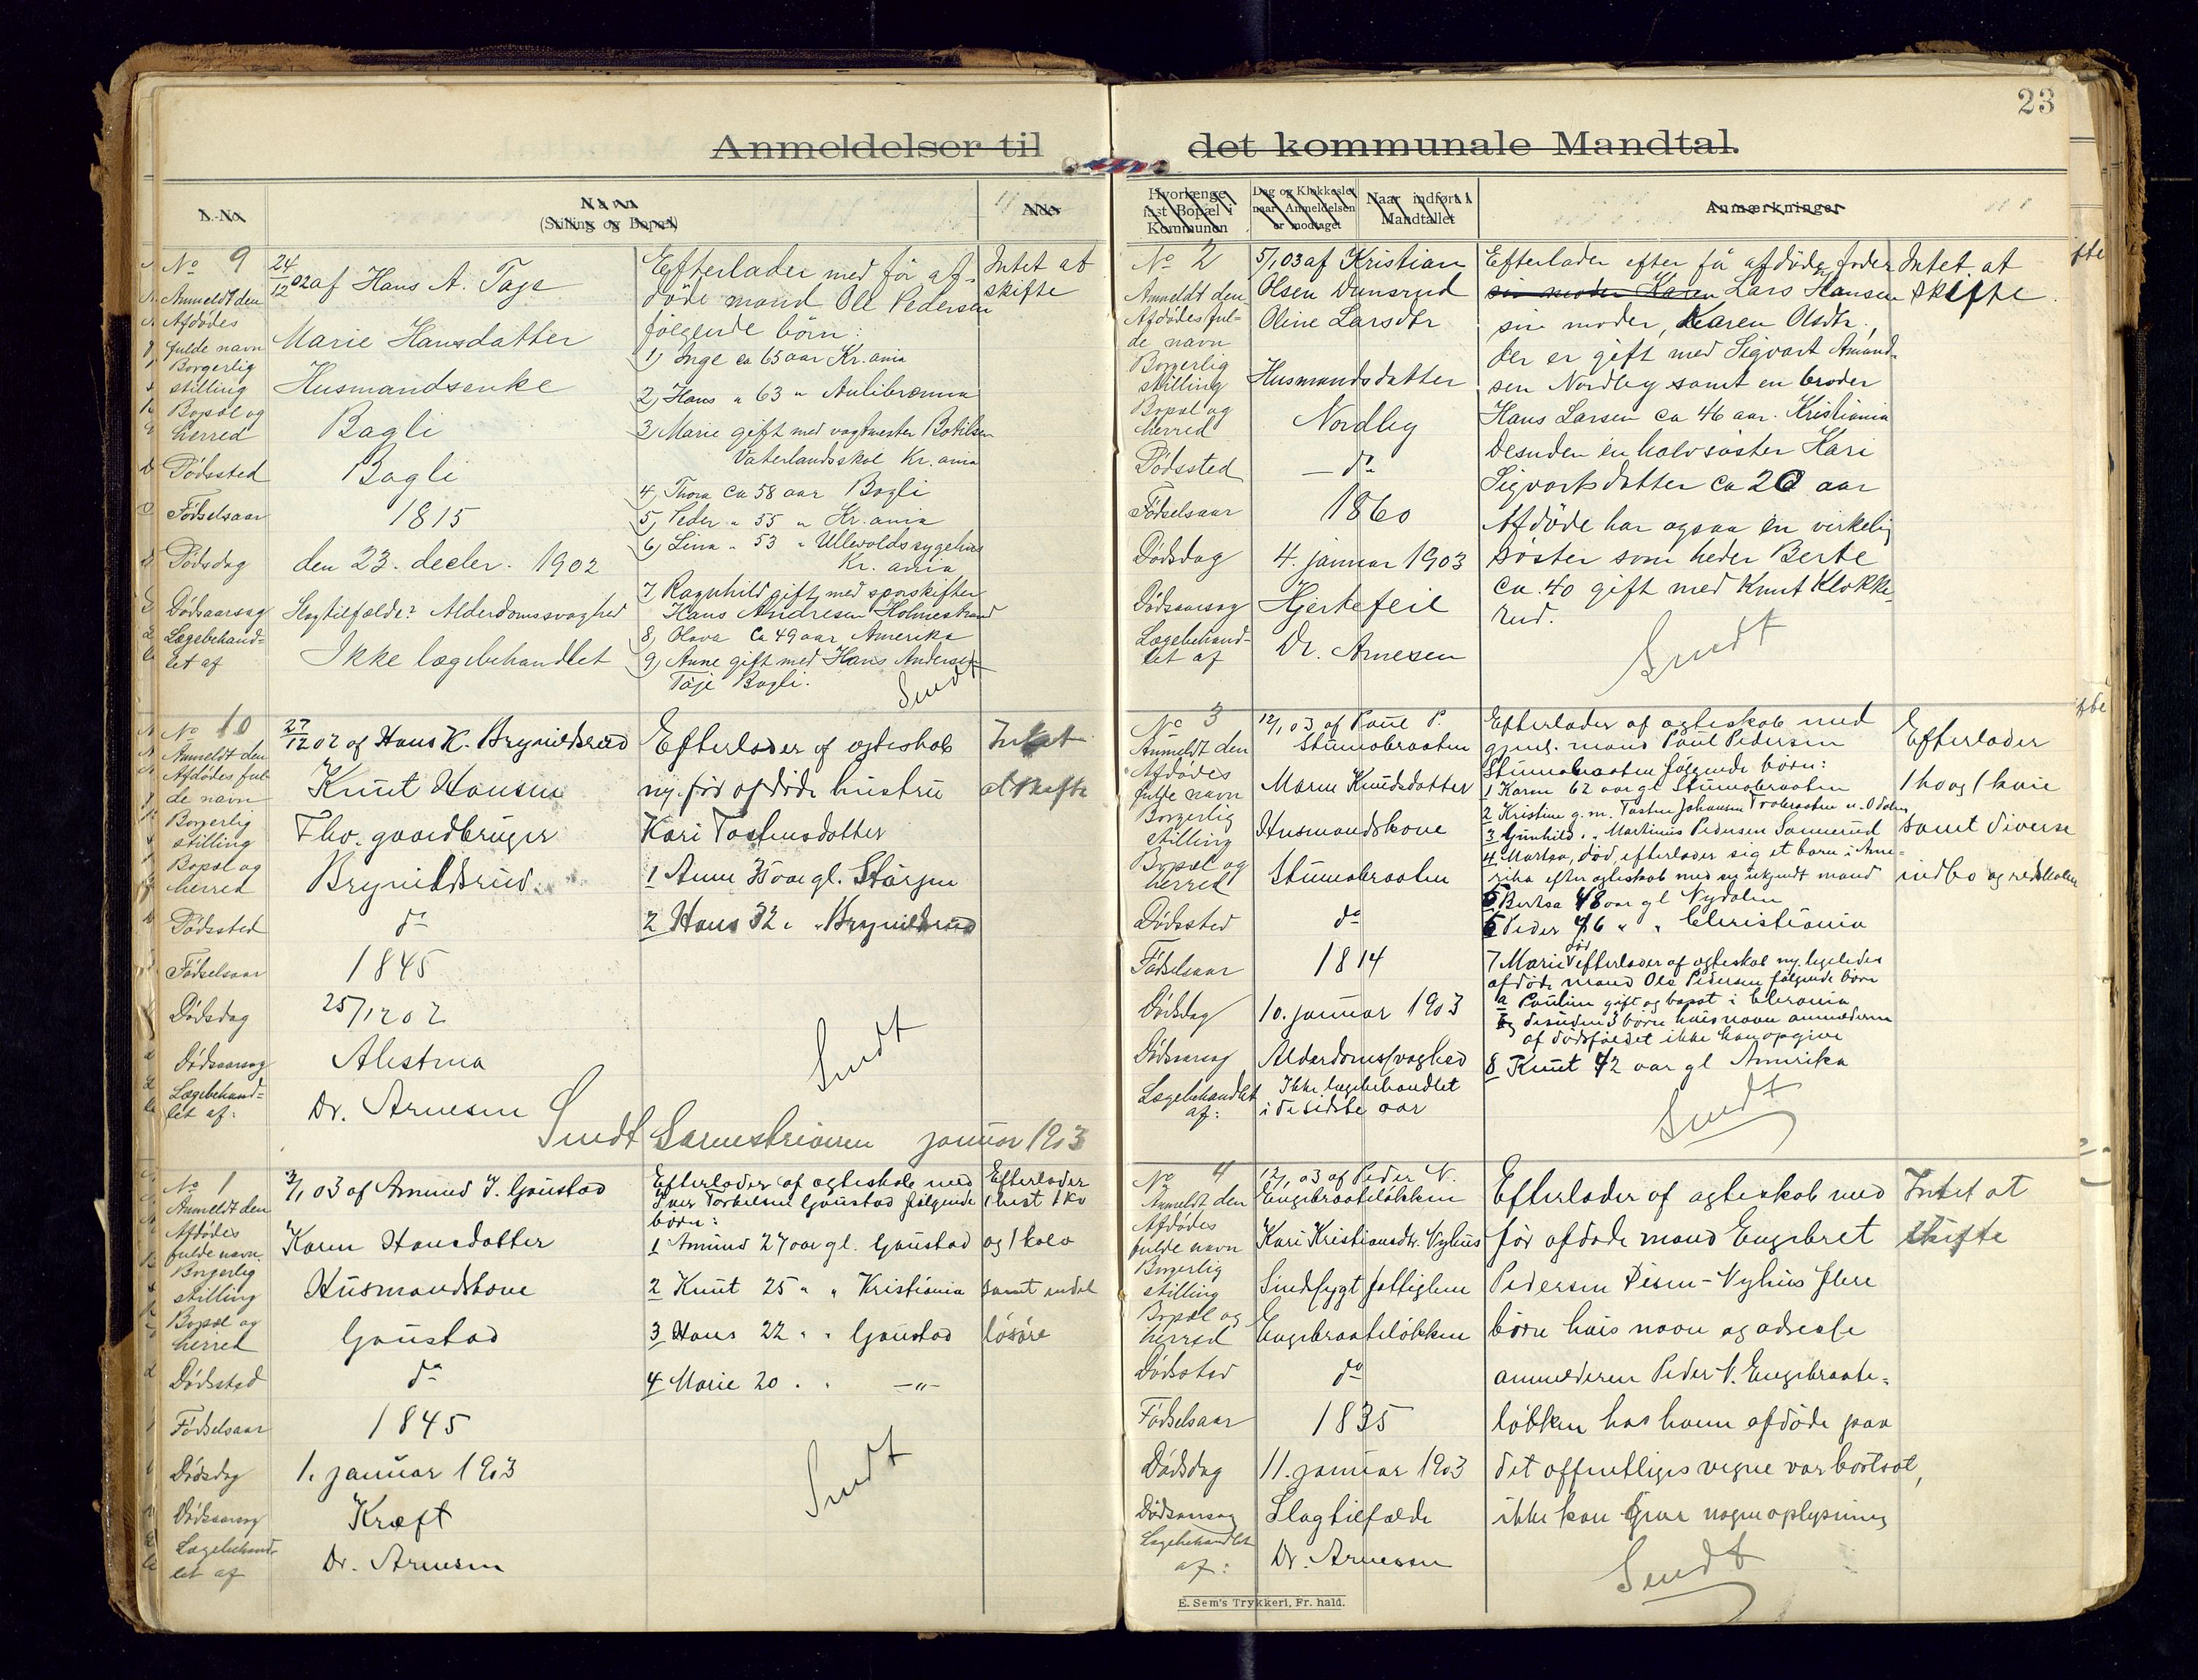 23
Anmeldelser til det kommunale Mandtal.
L. No
Navn
(Stilling og Bopæl)
Alder
No 9
24/12 02 af Hans A. Tage
Anmeldt den
Afdødes
fulde navn
Marie Hansdatter
Borgerlig
stilling
Husmandsenke
Bopæl og
herred
Bagli
Dødssted
Bagli
Fødselsaar
1815
Dødsdag
den 23. decbr. 1902
Dødsaarsag
Slagtilfælde? Alderdomssvaghed
Lægebehand-
let af
Ikke lægebehandlet
Efterlader med før af-
døde mand Ole Pedersen
følgende børn:
1) Inge ca 65 aar Kr.ania
2) Hans " 63 "
3) Marie gift med vagtmester
Vaterlandsskole Kr.ania
4) Thora ca 58 aar Bagli
5) Peder " 55 " Kr.ania
6) Lina " 53 " Ullevolds sygehus
Kr. ania
7 Ragnhild gift med sporskifter
Hans Andresen Holmestrand
8) Olava ca 49 aar Amerika
9) Anne gift med Hans Andersen
Tøje Bagli.
Sendt
Intet at
skifte
No 10
27/12 02 af Hans K. Brynildsrud
Anmeldt den
Afdødes ful-
de navn
Knut Hansen
Borgerlig
stilling
Fhv. gaardbruger
Bopæl og
herred
Brynildsrud
Dødssted
do
Fødselsaar
1845
Dødsdag
25/12 02
Dødsaarsag
Lægebehand-
let af:
Dr. Arnesen
Efterlader af ægteskab
med før afdøde hustru
Kari Tostensdatter
1 Anne 35 aar gl.
2 Hans 32 " " Brynildsrud
Sendt
Intet
at skifte
Sendt Sorenskriveren januar 1903
No 1
3/1 03 af Amund I. Gaustad
Anmeldt den
Afdødes
fulde navn
Karen Hansdatter
Borgerlig
stilling
Husmandskone
Bopæl og
herred
Gaustad
Dødssted
do
Fødselsaar
1845
Dødsdag
1. januar 1903
Dødsaarsag
Kræft
Lægebehand-
let af
Dr. Arnesen
Efterlader af ægteskab med
Iver Torkelsen Gaustad følgende
børn:
1 Amund 27 aar gl. Gaustad
2 Knut 25 " " Kristiania
3 Hans 22 " " Gaustad
4 Marie 20 " " —"—
Sendt
Efterlader
1 hest 1 ko
og 1 kalv
samt endel
løsøre
Hvorlænge
fast Bopæl i
Kommunen
Dag og Klokkeslet
naar Anmeldelsen
er modtaget
Naar indført i
Mandtallet
Anmærkninger
No 2
5/1 03 af Kristian
Anmeldt den
Olsen Dunsrud
Afdødes ful-
de navn
Oline Larsdtr
Borgerlig
stilling
Husmandsdatter
Bopæl og
herred
Nordby
Dødssted
— do
Fødselsaar
1860
Dødsdag
4. januar 1903
Dødsaarsag
Hjertefeil
Lægebehand-
let af
Dr. Arnesen
Efterlader efter få afdøde fader
sin moder Karen Lars Hansen
sin moder, Karen Olsdtr.,
der er gift med Sigvart Amund-
sen Nordby samt en broder
Hans Larsen ca 46 aar. Kristiania
Desuden en halvsøster Kari
Sigvartsdatter ca 20 aar
Afdøde har ogsaa en virkelig
søster som heder Berte
ca. 40 gift med Knut Klokke-
rud.
Sendt
Intet at
skifte.
No 3
12/1 03 af Paul P.
Stumobraaten
Anmeldt den
Afdødes
fulde navn
Maren Knudsdatter
Borgerlig
stilling
Husmandskone
Bopæl og
herred
Stumobraaten
Dødssted
do
Fødselsaar
1814
Dødsdag
10. januar 1903
Dødsaarsag
Alderdomssvaghed
Lægebehandlet
af:
Ikke lægebehandlet
i de sidste aar
Efterlader af ægteskab med
gjenl. mand Paul Pedersen
Stumobraaten følgende børn:
1 Karen 62 aar gl Stumobraaten
2 Kristine g. m. Tosten Johansen
3 Gunhild " " Martinius Pedersen Sannerud
4 Martha, død, efterlader sig et barn i Ame-
rika efter ægteskab med en ukjendt mand
5 Bertha 48 aar gl Nydalen
6 Peder 46 " " Christiania
7 Marie død efterlader af ægteskab med ligeledes
afdøde mand Ole Pedersen følgende børn
a Pauline gift og bosat i Chrania
og desuden 3 børn hvis navn anmelderen
af dødsfaldet ikke kan opgive
8 Knut 42 aar gl Amerika
Sendt
Efterlader
1 ho og 1 kvie
samt diverse
indbo og redskaber
No 4
12/1 03 af Peder N.
Engebraateløkken
Anmeldt den
Afdødes
fulde navn
Kari Kristiansdtr. Nyhus
Borgerlig
stilling
Sindssygt fattiglem
Bopæl og
herred
Engebraateløkken
Dødssted
do
Fødselsaar
1835
Dødsdag
11. januar 1903
Dødsaarsag
Slagtilfælde
Lægebehandlet
af:
Dr. Arnesen
Efterlader af ægteskab med
før afdøde mand Engebret
Pedersen Nyhus flere
børn hvis navn og adresse
anmelderen Peder N. Engebraate-
løkken hos hvem afdøde paa
det offentliges vegne var bortsat,
ikke kan give nogen oplysning
Sendt
Intet at
skifte
E. Sem's Trykkeri, Fr. hald.